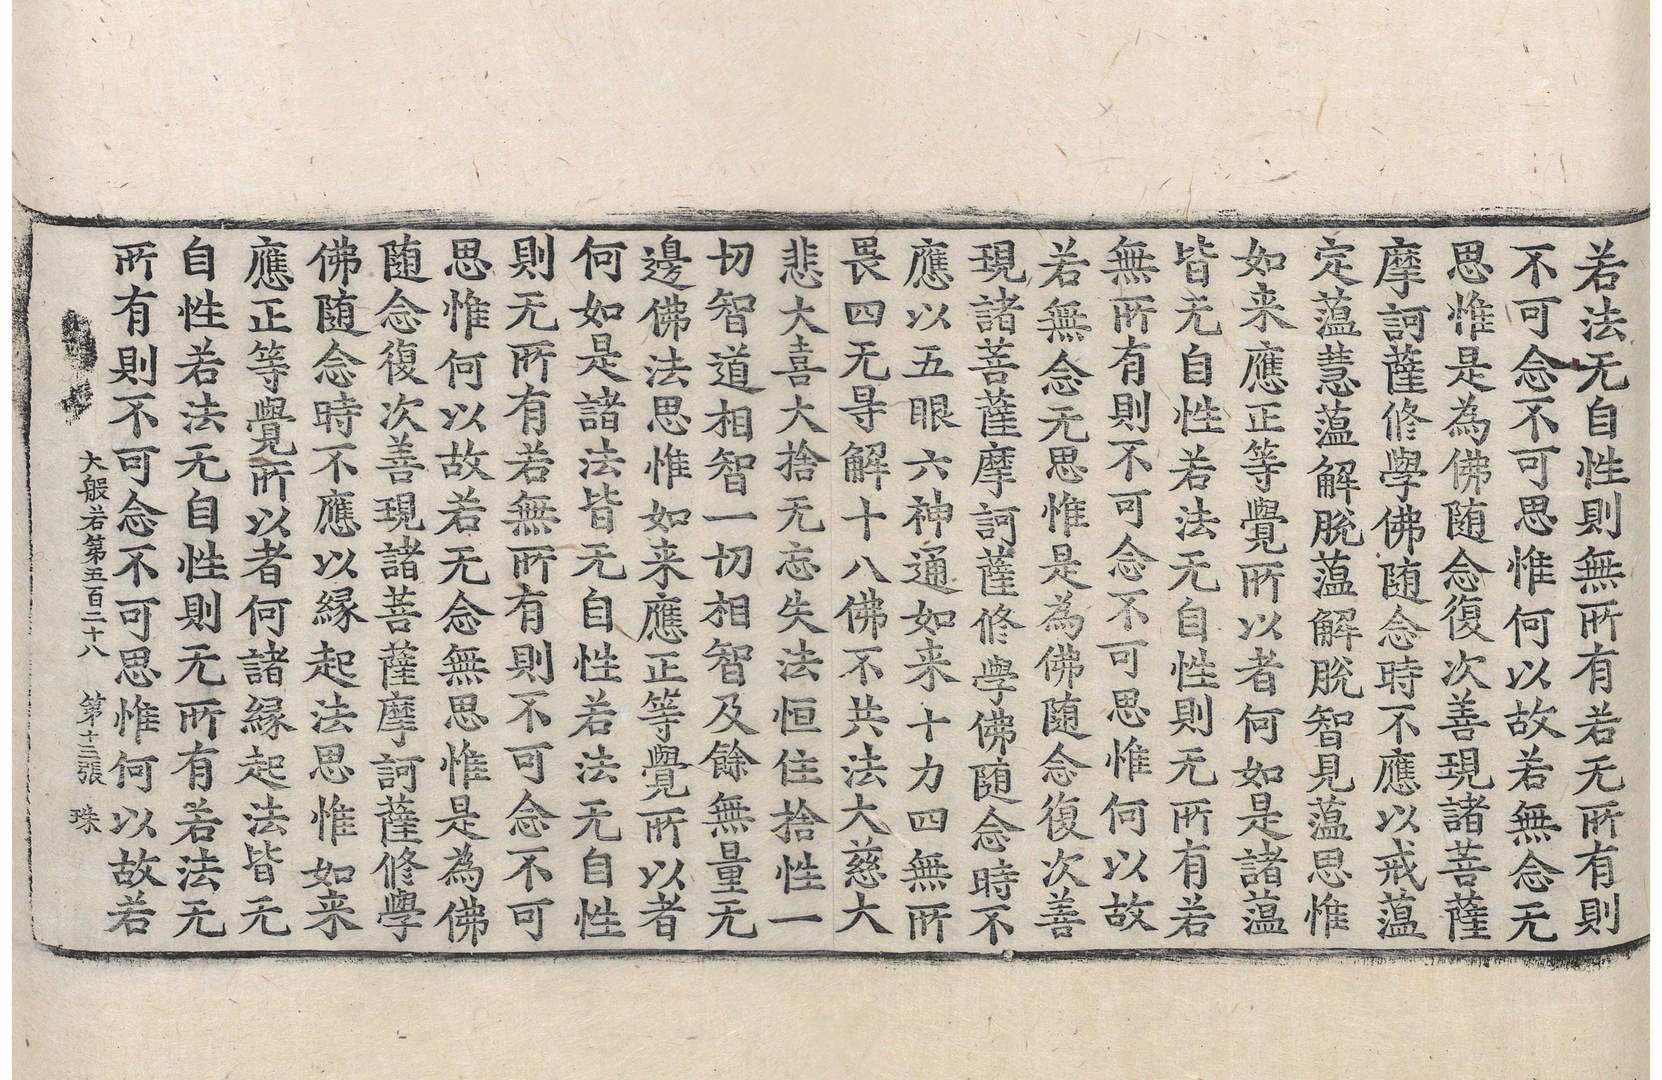 若法无自性則無所有若无所有則
不可念不可思惟何以故若無念无
思惟是為佛随念復次善現諸菩薩
摩訶薩修學佛随念時不應以戒蕰
定蕰慧蕰解脫蕰解脫智見蕰思惟
如来應正等覺所以者何如是諸蕰
皆无自性若法无自性則无所有若
無所有則不可念不可思惟何以故
若無念无思惟是為佛随念復次善
現諸菩薩摩訶薩修學佛随念時不
應以五眼六神通如来十力四無所
畏四无㝵解十八佛不共法大慈大
悲大喜大捨无忘失法恒住捨性一
切智道相智一切相智及餘無量无
邊佛法思惟如来應正等覺所以者
何如是諸法皆无自性若法无自性
則无所有若無所有則不可念不可
思惟何以故若无念無思惟是為佛
随念復次善現諸菩薩摩訶薩修學
佛随念時不應以縁起法思惟如来
應正等覺所以者何諸縁起法皆无
自性若法无自性則无所有若法无
所有則不可念不可思惟何以故若
大般若第五百二十八 第十三張 珠